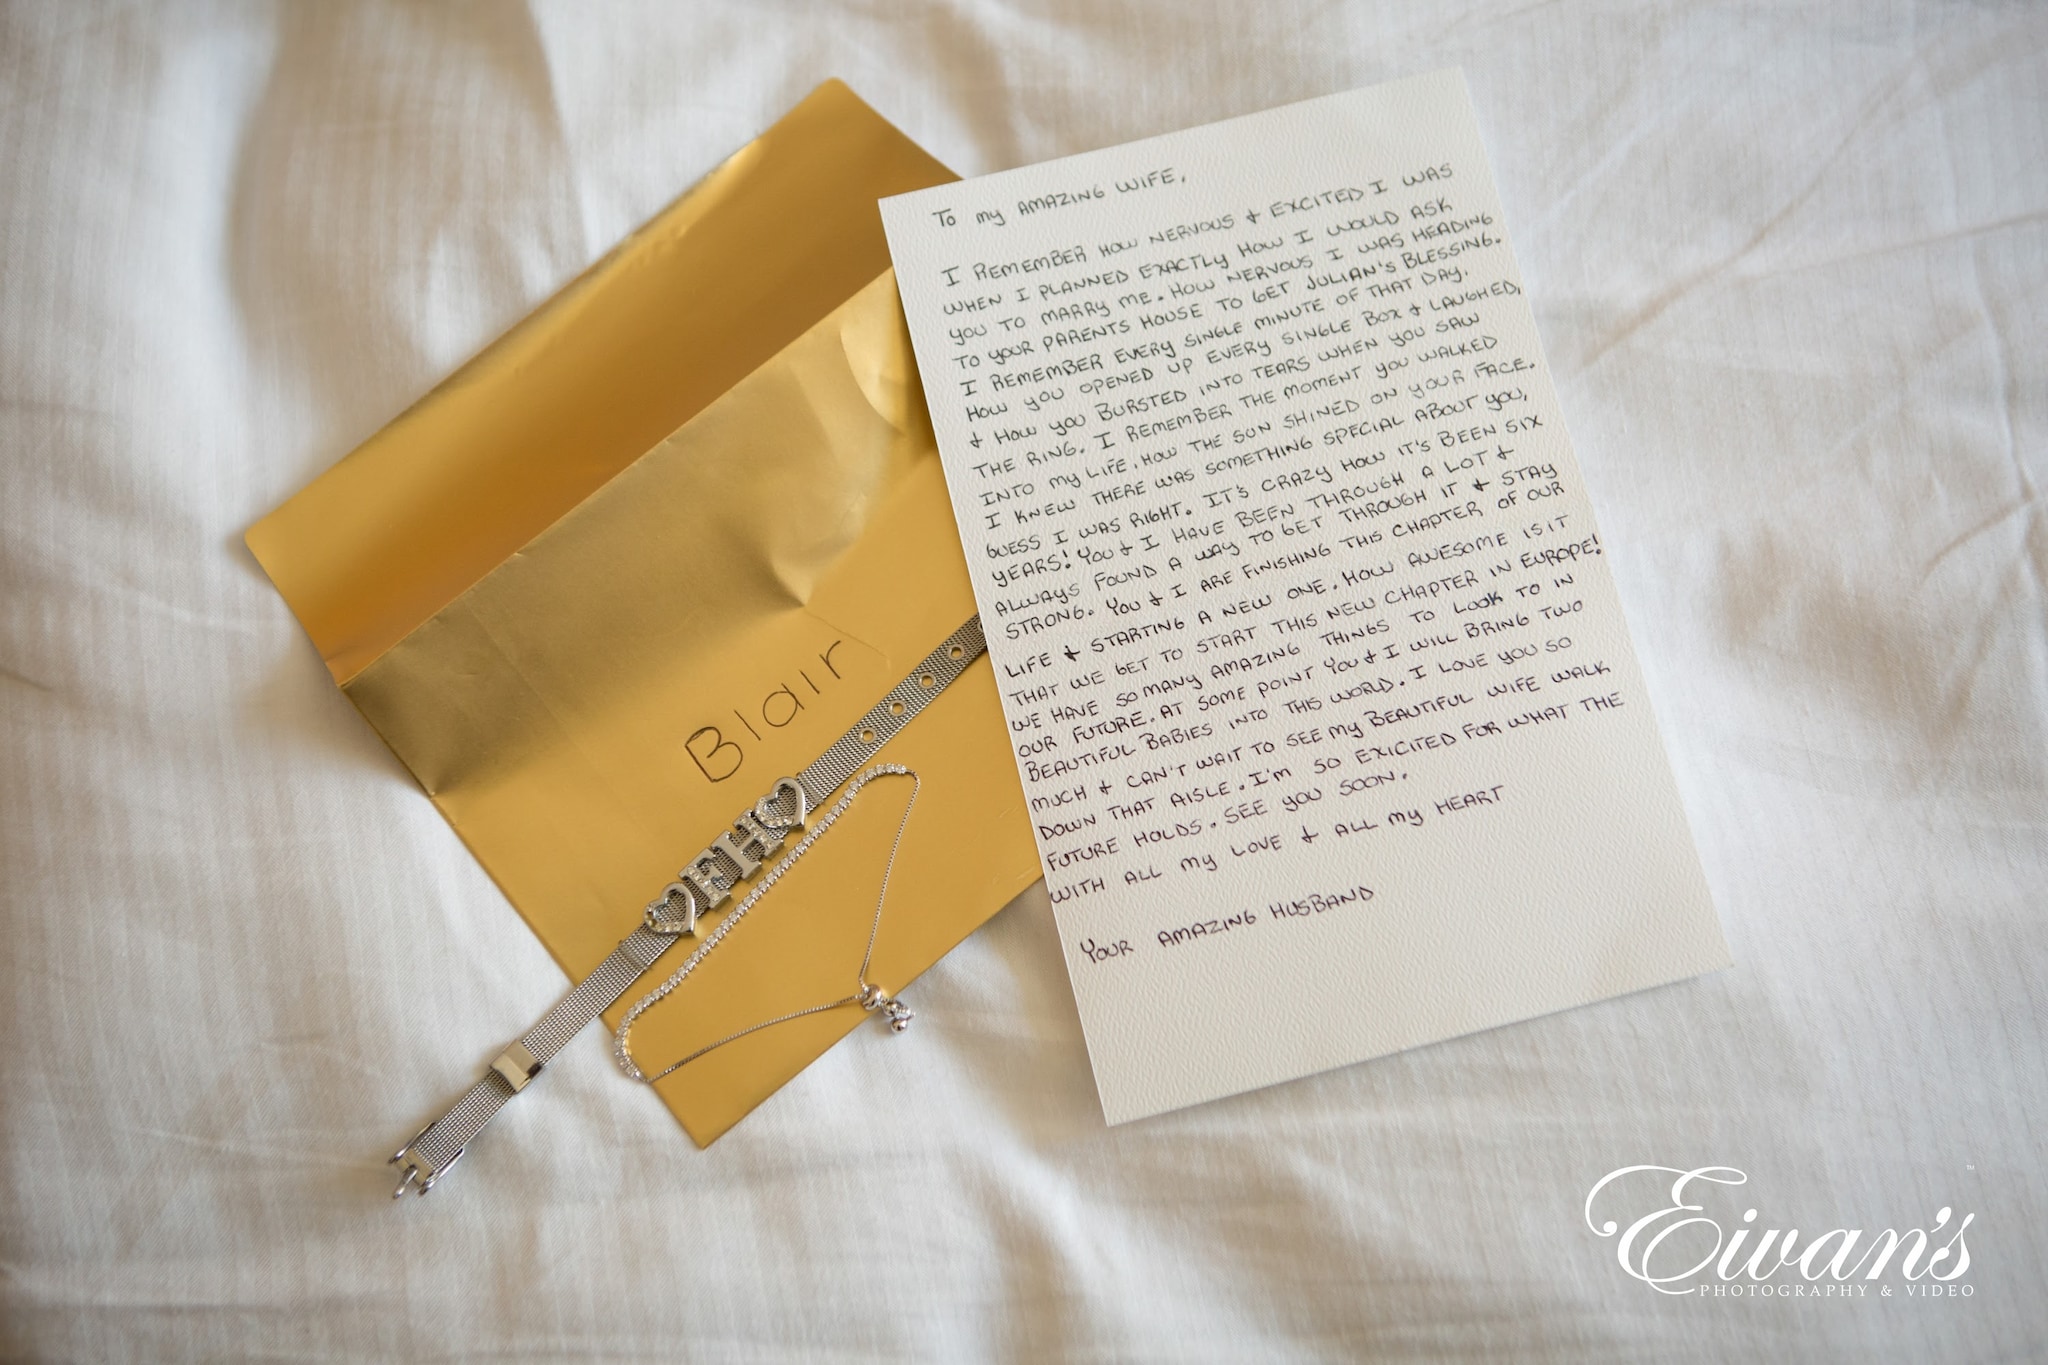 To my AMAZING WIFE,
I REMEMBER HOW NERVOUS & EXCITED I WAS
WHEN I PLANNED EXACTLY HOW I WOULD ASK
YOU TO MARRY ME. HOW NERVOUS I WAS HEADING
TO YOUR PARENTS HOUSE TO GET JULIAN'S BLESSING.
I REMEMBER EVERY SINGLE MINUTE OF THAT DAY.
HOW YOU OPENED UP EVERY SINGLE BOX & LAUGHED,
& HOW YOU BURSTED INTO TEARS WHEN YOU SAW
THE RING. I REMEMBER THE MOMENT YOU WALKED
INTO MY LIFE. HOW THE SUN SHINED ON YOUR FACE.
I KNEW THERE WAS SOMETHING SPECIAL ABOUT YOU,
GUESS I WAS RIGHT. IT'S CRAZY HOW IT'S BEEN SIX
YEARS! YOU & I HAVE BEEN THROUGH A LOT &
ALWAYS FOUND A WAY TO GET THROUGH IT & STAY
STRONG. YOU & I ARE FINISHING THIS CHAPTER OF OUR
LIFE & STARTING A NEW ONE. HOW AWESOME IS IT
THAT WE GET TO START THIS NEW CHAPTER IN EUROPE!
WE HAVE SO MANY AMAZING THINGS TO LOOK TO IN
OUR FUTURE. AT SOME POINT YOU & I WILL BRING TWO
BEAUTIFUL BABIES INTO THIS WORLD. I LOVE YOU SO
MUCH & CAN'T WAIT TO SEE MY BEAUTIFUL WIFE WALK
DOWN THAT AISLE. I'M SO EXICITED FOR WHAT THE
FUTURE HOLDS. SEE YOU SOON.
WITH ALL MY LOVE & ALL MY HEART
YOUR AMAZING HUSBAND
Blair
FH
Eivan's
PHOTOGRAPHY & VIDEO